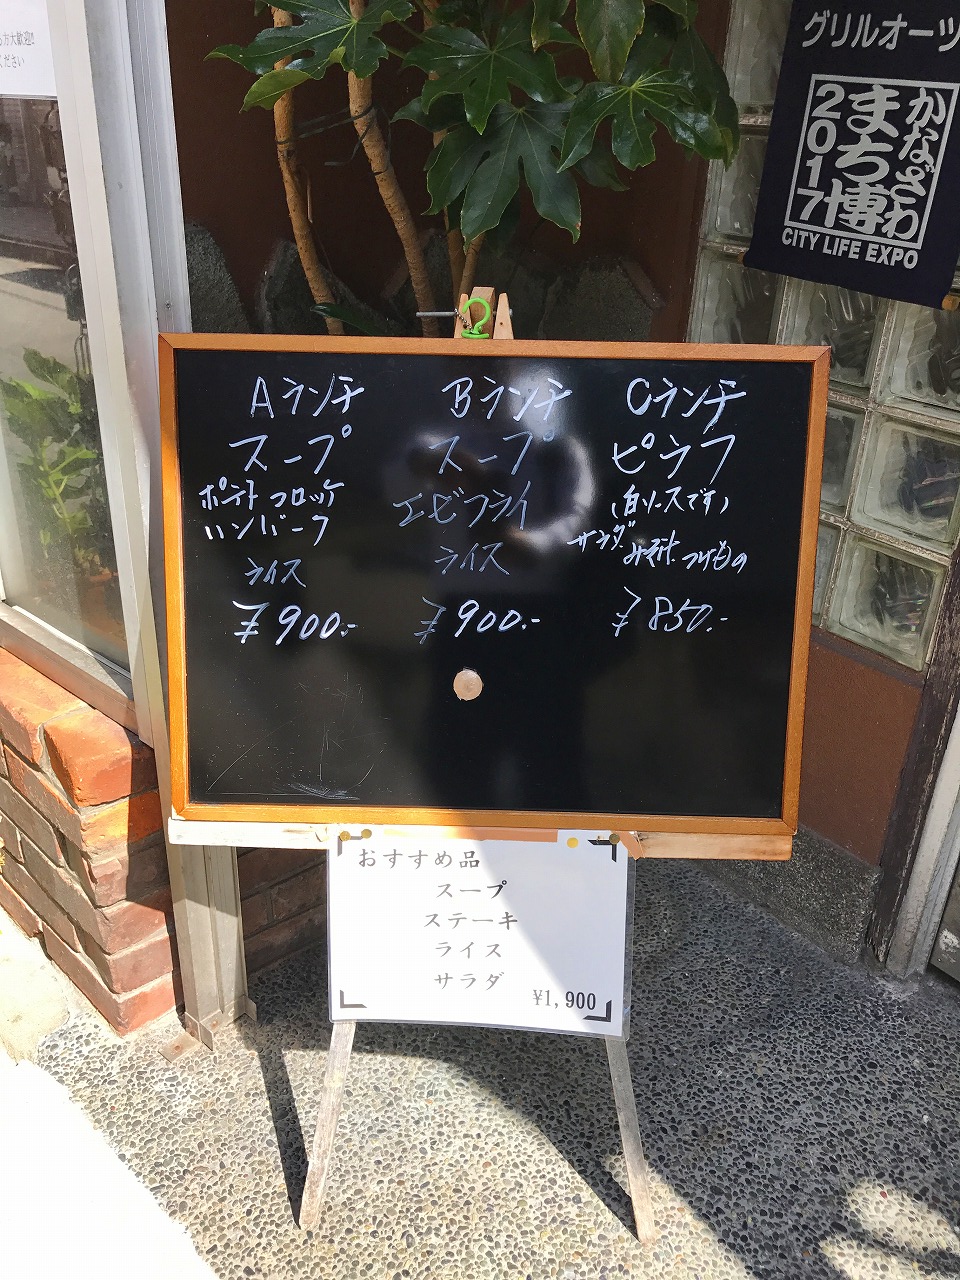 大歓迎!!
ください
グリルオーツ
かなざわ
まち博
2017
CITY LIFE EXPO
Aランチ
スープ
ポテトコロッケ
ハンバーグ
ライス
¥900.-
Bランチ
スープ
エビフライ
ライス
¥900.-
Cランチ
ピラフ
(白ソースです)
サラダ みそ汁 つけもの
¥850.-
おすすめ品
スープ
ステーキ
ライス
サラダ
¥1,900